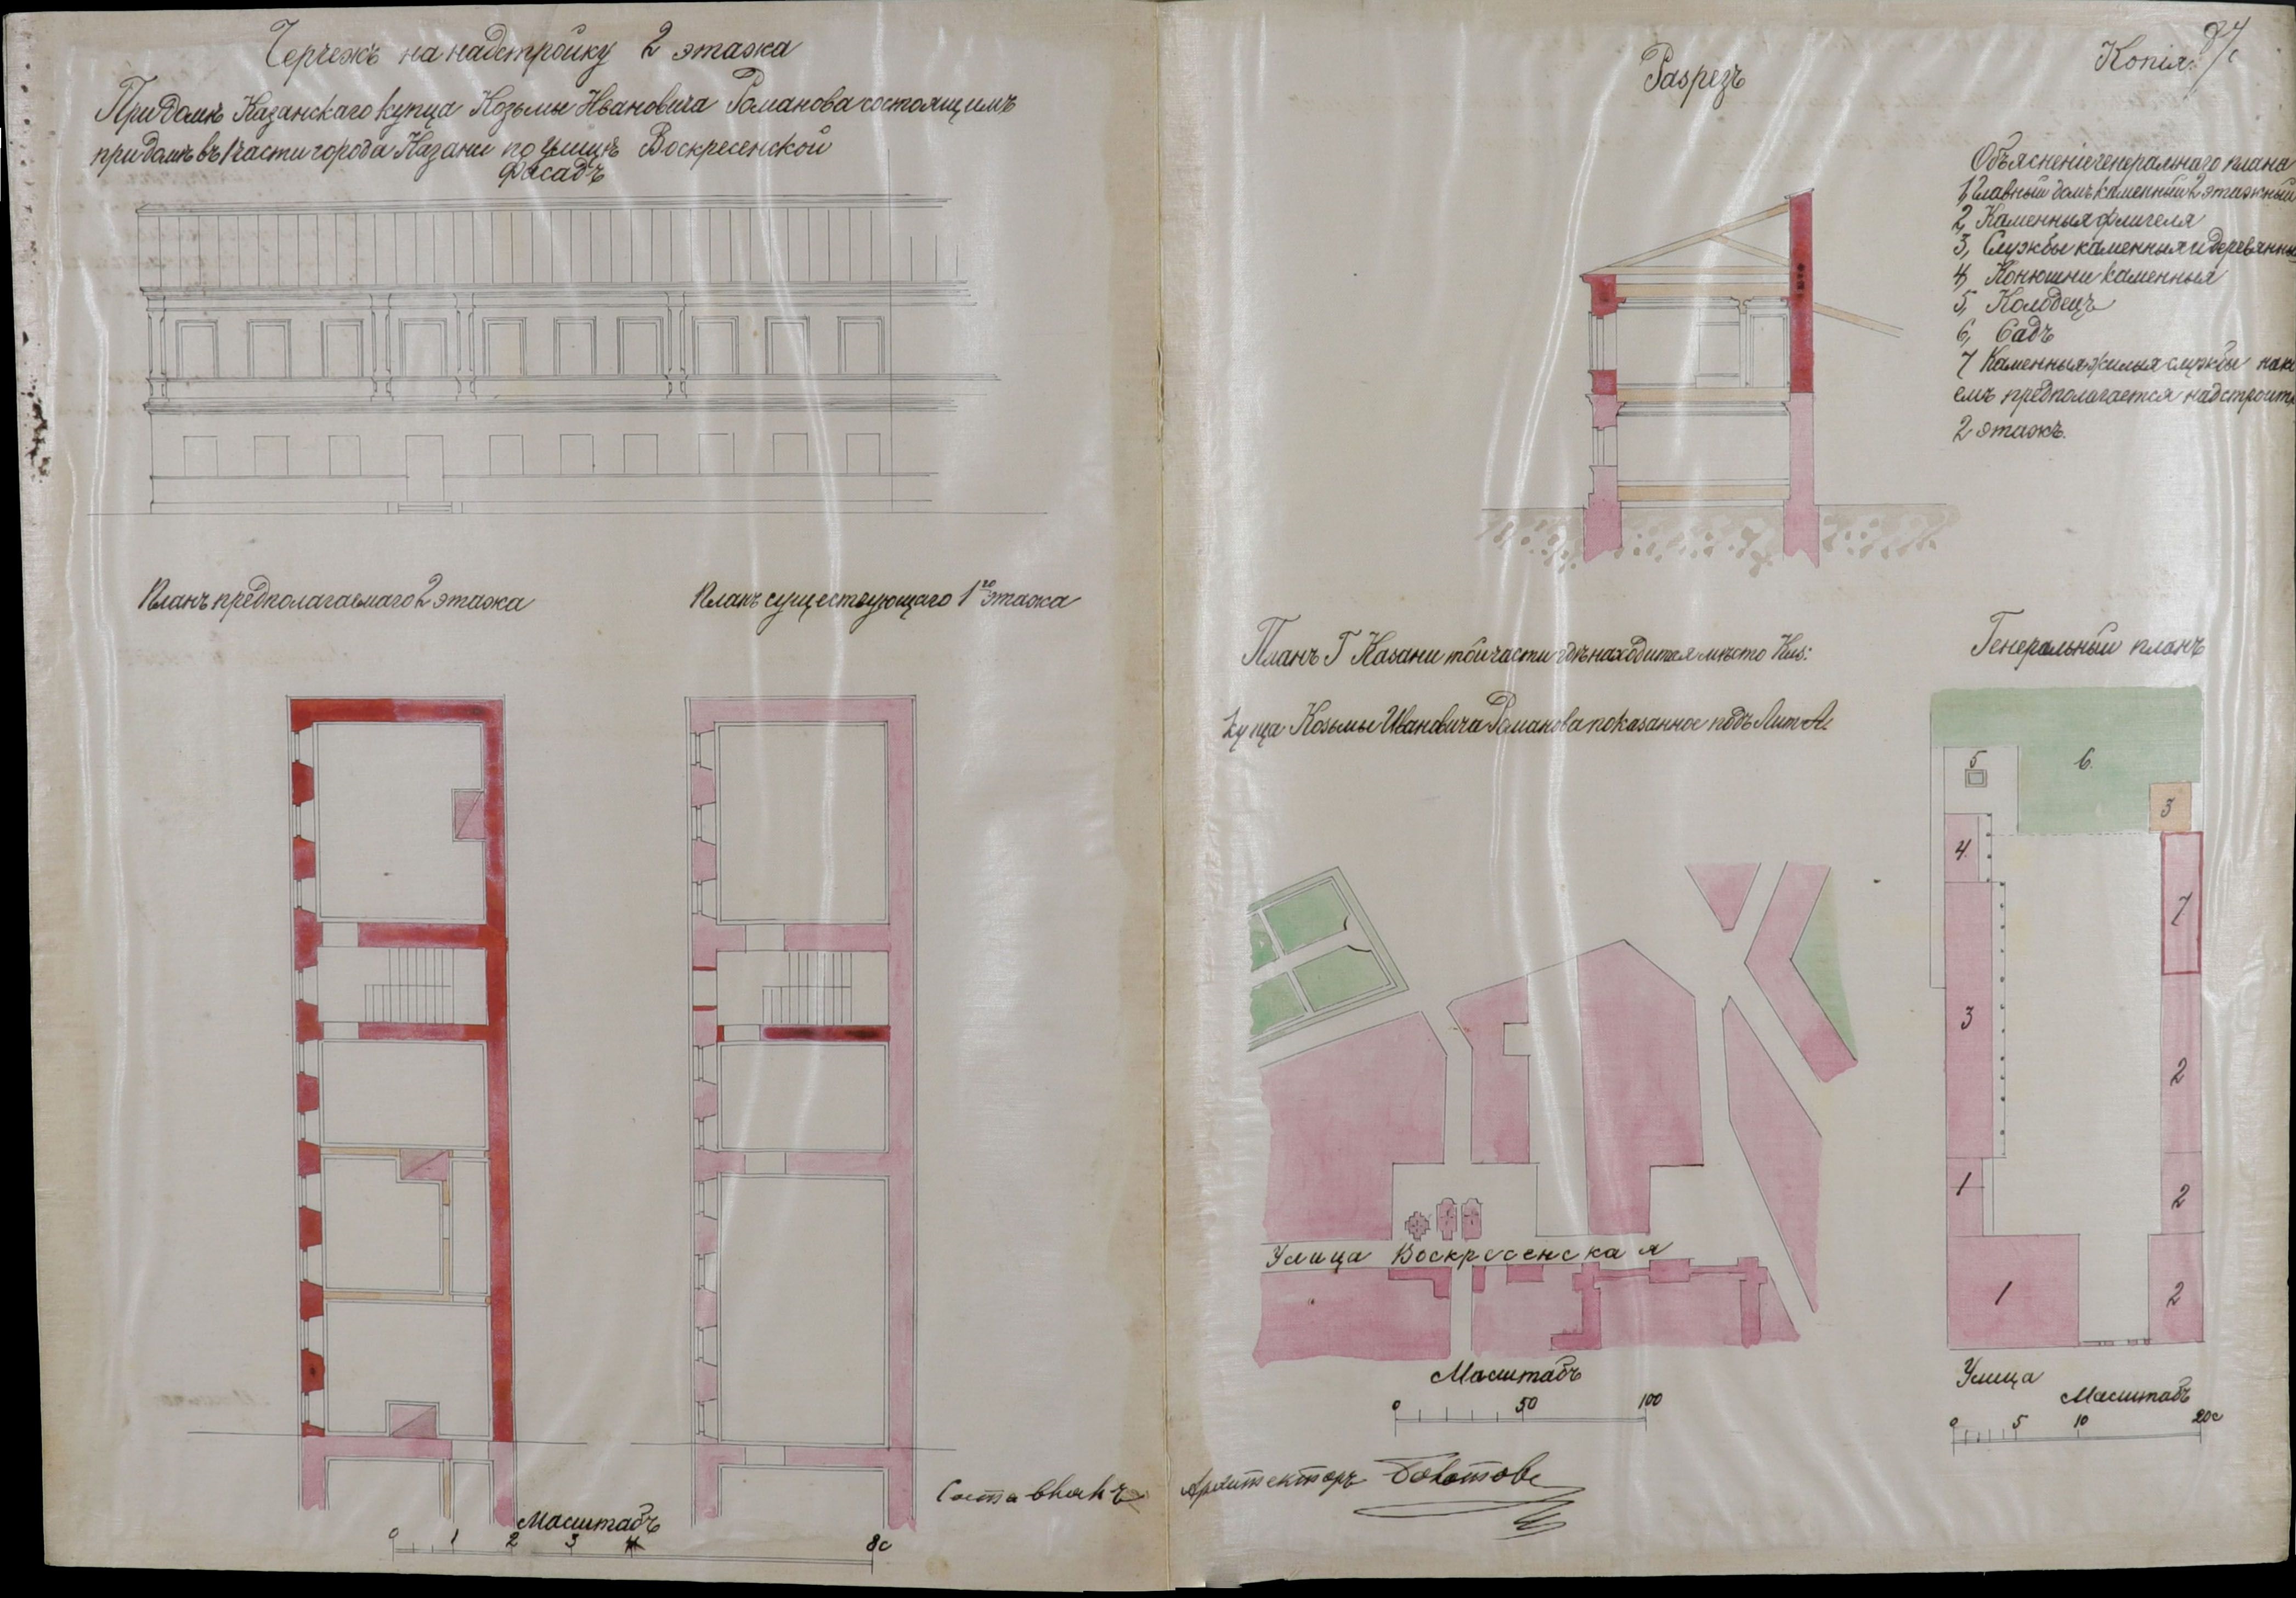 Чертежъ на надстройку 2 этажа
При домѣ Казанскаго купца Козьмы Ивановича Романова состоящимъ
при домѣ въ 1 части города Казани по улицѣ Воскресенской
Фасадъ
Планъ предполагаемаго 2 этажа
Планъ существующаго 1го этажа
Масштабъ
0 1 2 3 4 8с
Составлялъ
Разрезъ
Копія.
84
Объясненіе генеральнаго плана
1, Главный домъ каменный 2 этажный
2, Каменныя флигеля
3, Службы каменныя и деревянны
4, Конюшни каменныя
5, Колодецъ
6, Садъ
7 Каменныя жилыя службы нако
емъ предполагается надстроить
2 этажъ.
Планъ Г Казани той части гдѣ находится место Каз:
купца Козьмы Ивановича Романова показанное подъ Лит А
Улица Воскресенская
Масштабъ
0 50 100
Архитекторъ
Генеральный планъ
5
6.
3
4.
7
3
2
1
2
1
2
Улица
Масштабъ
0 5 10 20с